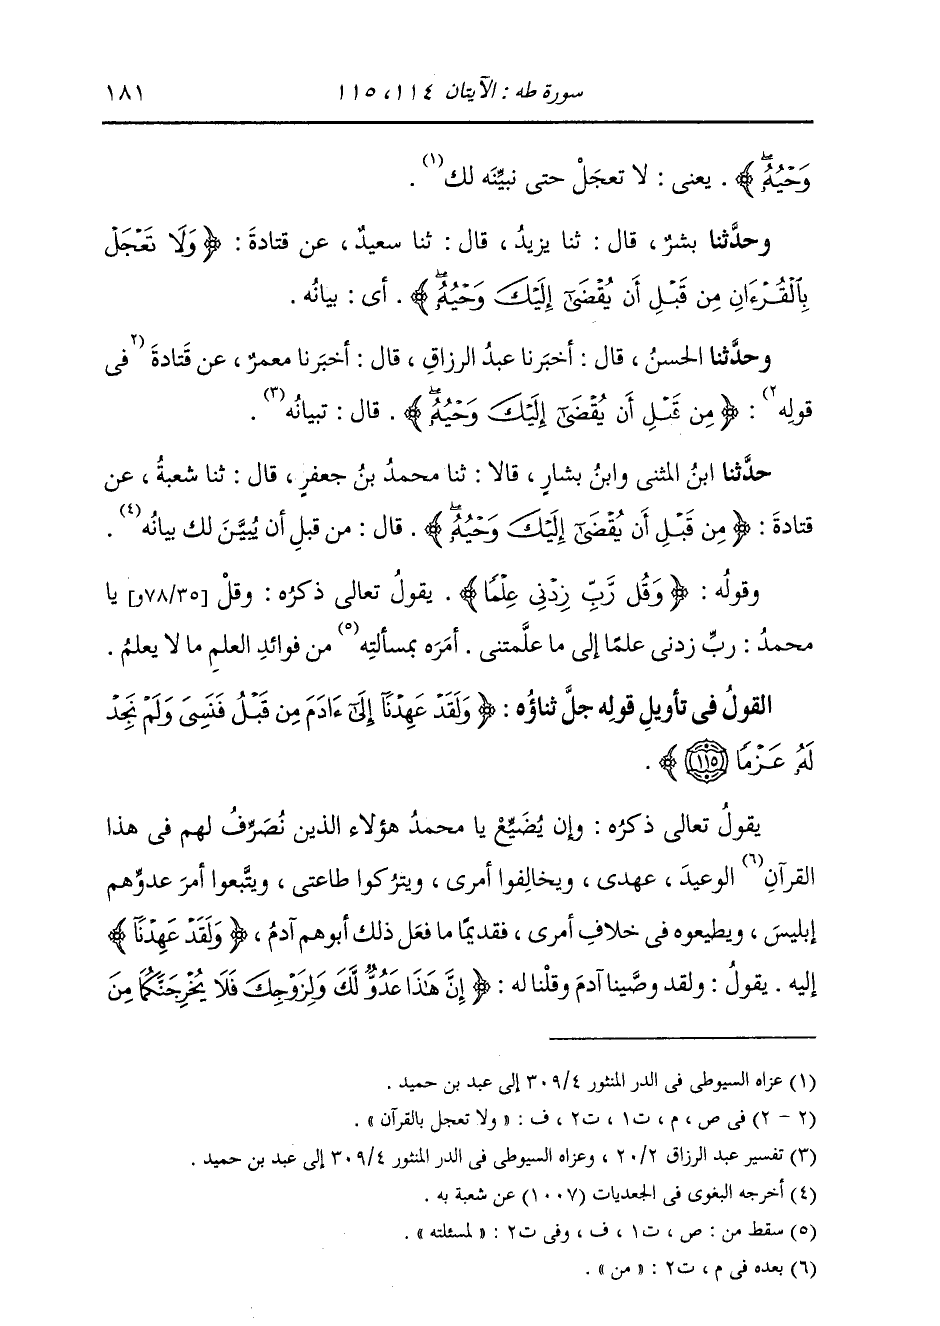 سورة طه : الآيتان ١١٤، ١١٥ ١٨١
وَحْيُهُۥۖ ﴾ . يعنى : لا تعجَلْ حتى نبيِّنَه لك(١) .
وحدَّثنا بشرٌ ، قال : ثنا يزيدُ ، قال : ثنا سعيدٌ ، عن قتادةَ : ﴿ وَلَا تَعْجَلْ
بِالْقُرْءَانِ مِن قَبْلِ أَن يُقْضَىٰٓ إِلَيْكَ وَحْيُهُۥۖ ﴾ . أى : بيانُه .
وحدَّثنا الحسنُ ، قال : أخبَرنا عبدُ الرزاقِ ، قال : أخبَرنا معمرٌ ، عن قَتادةَ (٢فى
قولِه٢) : ﴿ مِن قَبْلِ أَن يُقْضَىٰٓ إِلَيْكَ وَحْيُهُۥۖ ﴾ . قال : تبيانُه(٣) .
حدَّثنا ابنُ المثنى وابنُ بشارٍ ، قالا : ثنا محمدُ بنُ جعفرٍ ، قال : ثنا شعبةُ ، عن
قتادةَ : ﴿ مِن قَبْلِ أَن يُقْضَىٰٓ إِلَيْكَ وَحْيُهُۥۖ ﴾ . قال : من قبلِ أن يُبيَّنَ لك بيانُه(٤) .
وقولُه : ﴿ وَقُل رَّبِّ زِدْنِى عِلْمًا ﴾ . يقولُ تعالى ذكرُه : وقلْ [٧٨/٣٥و] يا
محمدُ : ربِّ زدنى علمًا إلى ما علَّمتنى . أمَره بمسألتِه(٥) من فوائدِ العلمِ ما لا يعلمُ .
القولُ فى تأويلِ قولِه جلَّ ثناؤُه : ﴿ وَلَقَدْ عَهِدْنَآ إِلَىٰٓ ءَادَمَ مِن قَبْلُ فَنَسِىَ وَلَمْ نَجِدْ
لَهُۥ عَزْمًا ١١٥ ﴾ .
يقولُ تعالى ذكرُه : وإن يُضَيِّعْ يا محمدُ هؤلاء الذين نُصَرِّفُ لهم فى هذا
القرآنِ(٦) الوعيدَ ، عهدى ، ويخالِفوا أمرى ، ويترُكوا طاعتى ، ويتَّبعوا أمرَ عدوِّهم
إبليسَ ، ويطيعوه فى خلافِ أمرى ، فقديمًا ما فعَل ذلك أبوهم آدمُ ، ﴿ وَلَقَدْ عَهِدْنَآ ﴾
إليه . يقولُ : ولقد وصَّينا آدمَ وقلْنا له : ﴿ إِنَّ هَٰذَا عَدُوٌّ لَّكَ وَلِزَوْجِكَ فَلَا يُخْرِجَنَّكُمَا مِنَ
(١) عزاه السيوطى فى الدر المنثور ٣٠٩/٤ إلى عبد بن حميد .
(٢ - ٢) فى ص ، م ، ت١ ، ت٢ ، ف : « ولا تعجل بالقرآن » .
(٣) تفسير عبد الرزاق ٢٠/٢ ، وعزاه السيوطى فى الدر المنثور ٣٠٩/٤ إلى عبد بن حميد .
(٤) أخرجه البغوى فى الجعديات (١٠٠٧) عن شعبة به .
(٥) سقط من : ص ، ت١ ، ف ، وفى ت٢ : « لمسئلته » .
(٦) بعده فى م ، ت٢ : « من » .